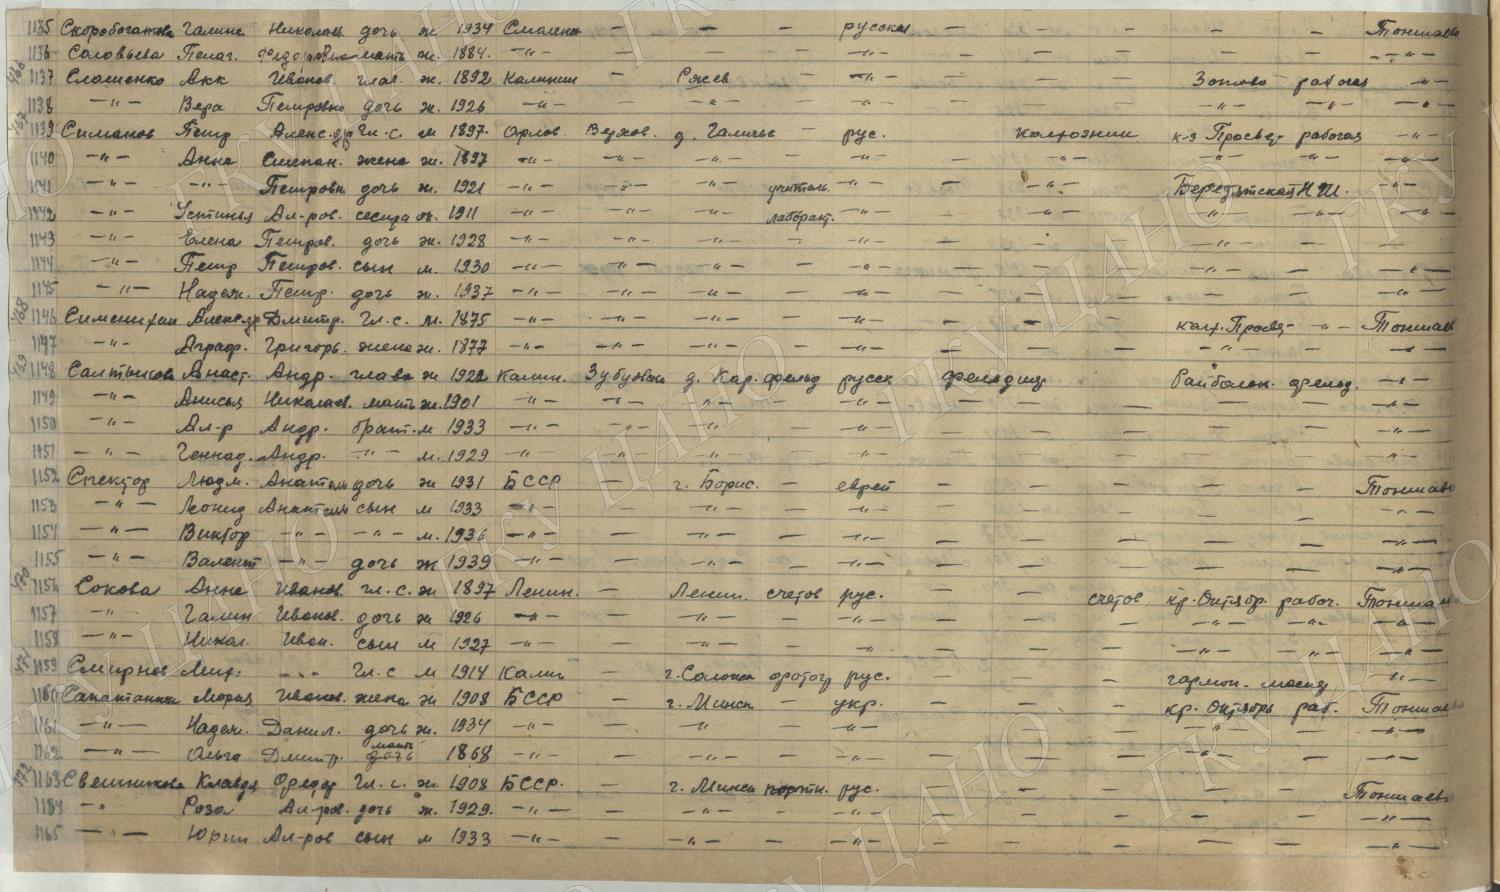 1135 Скоробогатова Галина Николаев. дочь ж 1934 Смоленск — — — русская — — — — — Тоншаево
1136 Соловьева Пелаг. Федоровна мать ж. 1884. —"— — — — — — — — — —"—
1137 Слошенко Акк Иванов. глав. ж. 1892 Калинин — Ржев — —"— — — — Зотово рабочая —"—
1138 —"— Вера Петровна дочь ж. 1926 —"— — —"— — —"— — — — —"— —"— —"—
1139 Симанов Петр Алекс-др Гл. с. м 1897. Орлов. Верхов. д. Галичье — рус. — колхозник к-з Просвет рабочая —"—
1140 —"— Анна Степан. жена ж. 1897 —"— —"— —"— — —"— — —"— —"— —"— —"—
1141 —"— —"— Петровн. дочь ж. 1921 —"— —"— —"— учитель. —"— — —"— Бередятская Н Ш. —"—
1142 —"— Устинья Ал-ров. сестра ж. 1911 —"— —"— —"— лаборант. —"— — —"— —"— —"— —"—
1143 —"— Елена Петров. дочь ж. 1928 —"— —"— —"— — —"— — — — —"— — —"—
1144 —"— Петр Петров. сын м. 1930 —"— —"— —"— — —"— — — — —"— — —"—
1145 —"— Надеж. Петр. дочь ж. 1937 —"— —"— —"— — —"— — — — — — —"—
1146 Сименихин Александр Дмитр. Гл. с. м. 1875 —"— —"— —"— — —"— — — — колх. Просв- —"— Тоншаев
1147 —"— Аграф. Григорь. жена ж. 1877 —"— —"— —"— — —"— — — — —"— — —"—
1148 Салтыкова Анаст. Андр. глава ж 1922 Калин. Зубцовск д. Кар. фельд русск фельдиц Райбольн. фельд. —"—
1149 —"— Анисья Николаев. мать ж. 1901 —"— —"— —"— — —"— — — — — — —"—
1150 —"— Ал-р Андр. брат. м 1933 —"— —"— —"— — —"— — — — — — —"—
1151 —"— Геннад. Андр. —"— м. 1929 —"— —"— —"— — —"— — — — — — —"—
1152 Спектор Людм. Анатоль дочь ж 1931 БССР — г. Борис. — еврей — — — — — Тоншаево
1153 —"— Леонид Анатоль сын м 1933 —"— — —"— — —"— — — — — — —"—
1154 —"— Виктор —"— —"— м. 1936 —"— — —"— — —"— — — — — — —"—
1155 —"— Валент —"— дочь ж 1939 —"— — —"— — —"— — — — — — —"—
1156 Сокова Анна Иванов. гл. с. ж 1897 Ленин. — Ленин. счетов рус. — — счетов кр. Октябр. рабоч. Тоншаев
1157 —"— Галин Иванов. дочь ж 1926 —"— — —"— — —"— — — — —"— —"— —"—
1158 —"— Никол. Иван. сын м 1927 —"— —"— — —"— — — — —"— —"— —"—
1159 Смирнов Мих. —"— Гл. с м 1914 Калин — рус. — — — гармон. —"—
1160 Мария Иванов. жена ж 1908 БССР — г. Минск — укр. — — — кр. Октябрь раб. Тоншаево
1161 —"— Надеж. Данил. дочь ж. 1934 —"— — —"— — —"— — — — —"— — —"—
1162 —"— Ольга Дмитр. мать 1868 —"— — —"— — —"— — — — —"— — —"—
1163 Свешникова Клавдя Федор Гл. с. ж. 1908 БССР. — г. Минск портн. рус. — — — — — Тоншаево
1164 —"— Роза Ал-ров. дочь ж. 1929. —"— — —"— — —"— — — — — — —"—
1165 —"— Юрии Ал-ров сын м 1933 —"— — —"— — —"— — — — — — —"—
466
467
468
469
470
471
472
ГКУ ЦАНО